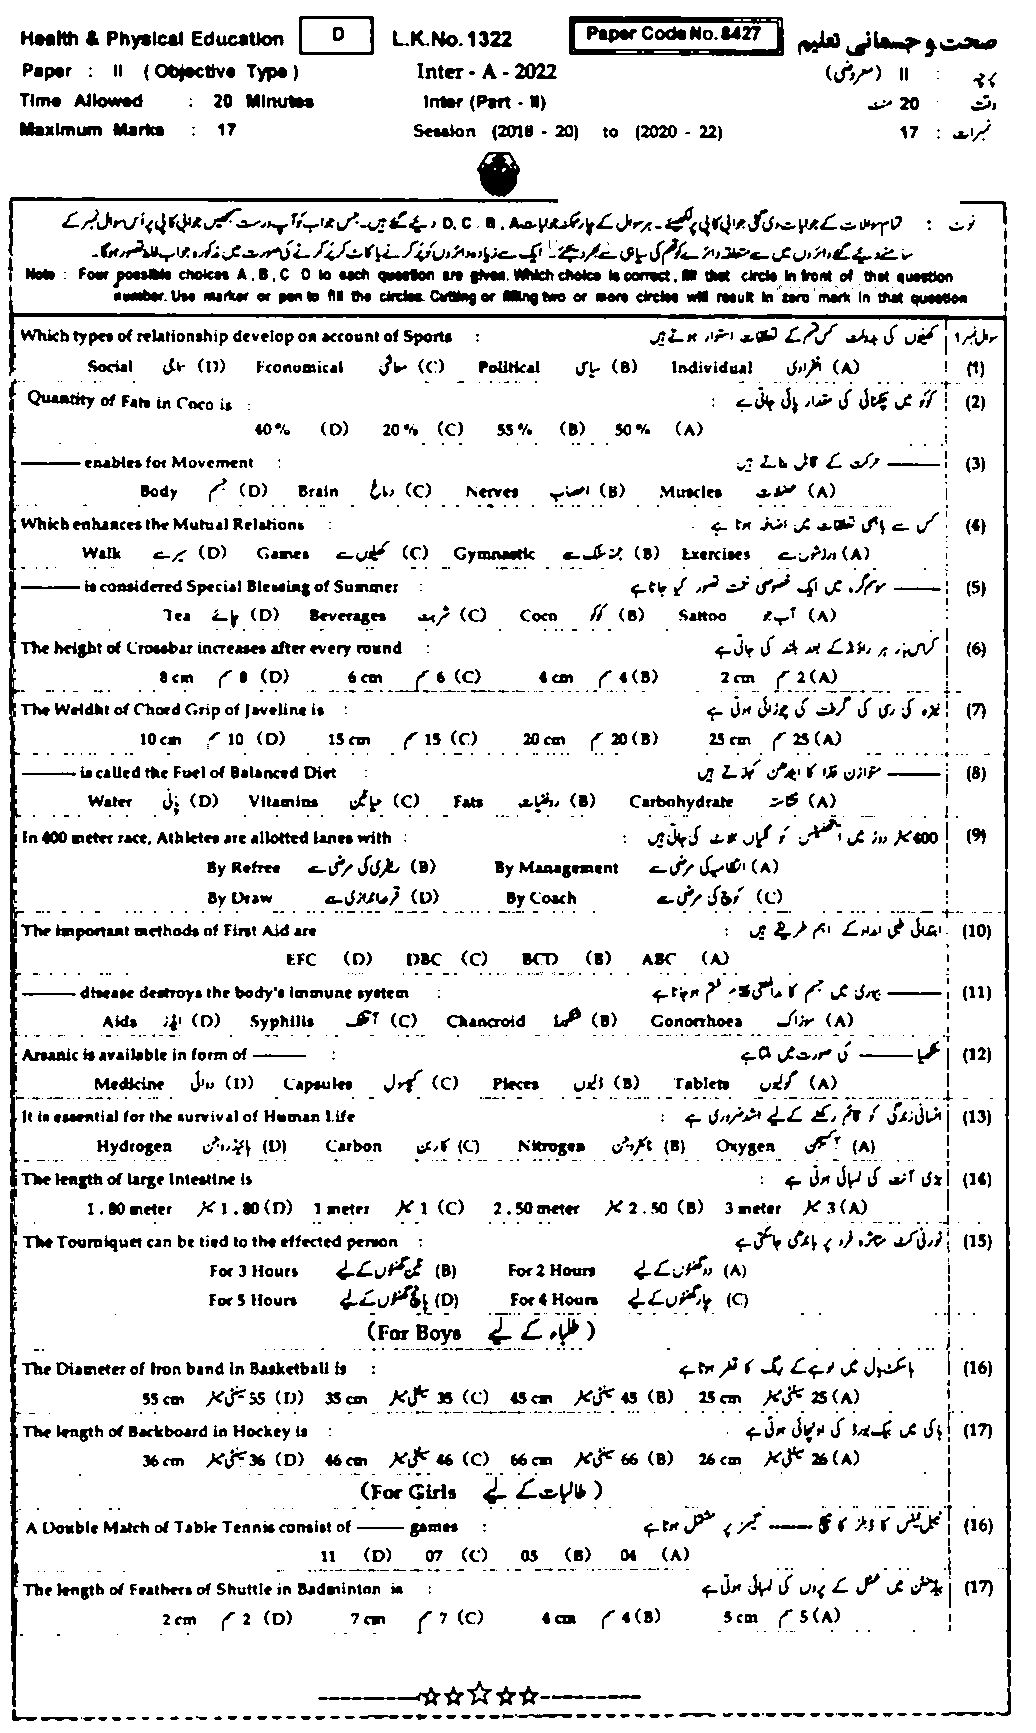 Health & Physical Education D L.K.No. 1322 Paper Code No. 8427 صحت و جسمانی تعلیم
Paper : II ( Objective Type ) Inter - A - 2022 پرچہ : II (معروضی)
Time Allowed : 20 Minutes Inter (Part - II) وقت : 20 منٹ
Maximum Marks : 17 Session (2018 - 20) to (2020 - 22) نمبرات : 17
نوٹ : تمام سوالات کے جوابات دی گئی جوابی کاپی پر لکھیئے۔ ہر سوال کے چار ممکنہ جوابات D, C, B, A دیئے گئے ہیں۔ جس جواب کو آپ درست سمجھیں جوابی کاپی پر اُس سوال نمبر کے
سامنے دیئے گئے دائروں میں سے متعلقہ دائرے کو قلم کی سیاہی سے بھر دیجئے۔ ایک سے زیادہ دائروں کو پُر کرنے یا کاٹ کر پُر کرنے کی صورت میں مذکورہ جواب غلط تصور ہوگا۔
Note : Four possible choices A , B , C D to each question are given. Which choice is correct , fill that circle in front of that question
number. Use marker or pen to fill the circles. Cutting or filling two or more circles will result in zero mark in that question
Which types of relationship develop on account of Sports : کھیلوں کی بدولت کس قسم کے تعلقات استوار ہوتے ہیں سوال نمبر 1
Social سماجی (D) Economical معاشی (C) Political سیاسی (B) Individual انفرادی (A) (1)
Quantity of Fats in Coco is : کوکو میں چکنائی کی مقدار پائی جاتی ہے : (2)
40 % (D) 20 % (C) 55 % (B) 50 % (A)
——— enables for Movement : ——— حرکت کے قابل بناتے ہیں (3)
Body جسم (D) Brain دماغ (C) Nerves اعصاب (B) Muscles عضلات (A)
Which enhances the Mutual Relations : کس سے باہمی تعلقات میں اضافہ ہوتا ہے : (4)
Walk سیر سے (D) Games کھیلوں سے (C) Gymnastic جمناسٹک سے (B) Exercises ورزش سے (A)
——— is considered Special Blessing of Summer : ——— موسم گرما میں ایک خصوصی نعمت تصور کیا جاتا ہے (5)
Tea چائے (D) Beverages شربت (C) Coco کوکو (B) Sattoo آب جو (A)
The height of Crossbar increases after every round : کراس بار ہر راؤنڈ کے بعد بلند کی جاتی ہے (6)
8 cm 8 سم (D) 6 cm 6 سم (C) 4 cm 4 سم (B) 2 cm 2 سم (A)
The Weidht of Chord Grip of Javeline is : نیزہ کی رسی کی گرفت کی چوڑائی ہوتی ہے (7)
10 cm 10 سم (D) 15 cm 15 سم (C) 20 cm 20 سم (B) 25 cm 25 سم (A)
——— is called the Fuel of Balanced Diet : ——— متوازن غذا کا ایندھن کہلاتے ہیں (8)
Water پانی (D) Vitamins حیاتین (C) Fats روغنیات (B) Carbohydrate نشاستہ (A)
In 400 meter race, Athletes are allotted lanes with : 400 میٹر دوڑ میں ایتھلیٹس کو گلیاں الاٹ کی جاتی ہیں : (9)
By Refree ریفری کی مرضی سے (B) By Management انتظامیہ کی مرضی سے (A)
By Draw قرعہ اندازی سے (D) By Coach کوچ کی مرضی سے (C)
The important methods of First Aid are ابتدائی طبی امداد کے اہم طریقے ہیں : (10)
EFC (D) DBC (C) BCD (B) ABC (A)
——— disease destroys the body's immune system : ——— بیماری میں جسم کا مدافعتی نظام ختم ہو جاتا ہے (11)
Aids ایڈز (D) Syphilis آتشک (C) Chancroid (B) Gonorrhoea سوزاک (A)
Arsanic is available in form of ——— : سنکھیا ——— کی صورت میں ملتا ہے (12)
Medicine دوائی (D) Capsules کیپسول (C) Pieces ڈلیوں (B) Tablets گولیوں (A)
It is essential for the survival of Human Life انسانی زندگی کو قائم رکھنے کے لیے اشد ضروری ہے : (13)
Hydrogen ہائیڈروجن (D) Carbon کاربن (C) Nitrogen نائٹروجن (B) Oxygen آکسیجن (A)
The length of large Intestine is بڑی آنت کی لمبائی ہوتی ہے : (14)
1.80 meter 1.80 میٹر (D) 1 meter 1 میٹر (C) 2.50 meter 2.50 میٹر (B) 3 meter 3 میٹر (A)
The Tourniquet can be tied to the effected person : ٹورنی کٹ متاثرہ فرد پر باندھی جا سکتی ہے (15)
For 3 Hours تین گھنٹوں کے لیے (B) For 2 Hours دو گھنٹوں کے لیے (A)
For 5 Hours پانچ گھنٹوں کے لیے (D) For 4 Hours چار گھنٹوں کے لیے (C)
(For Boys طلباء کے لیے)
The Diameter of Iron band in Basketball is : باسکٹ بال میں لوہے کے رنگ کا قطر ہوتا ہے (16)
55 cm 55 سینٹی میٹر (D) 35 cm 35 سینٹی میٹر (C) 45 cm 45 سینٹی میٹر (B) 25 cm 25 سینٹی میٹر (A)
The length of Backboard in Hockey is : ہاکی میں بیک بورڈ کی اونچائی ہوتی ہے (17)
36 cm 36 سینٹی میٹر (D) 46 cm 46 سینٹی میٹر (C) 66 cm 66 سینٹی میٹر (B) 26 cm 26 سینٹی میٹر (A)
(For Girls طالبات کے لیے)
A Double Match of Table Tennis consist of ——— games : ٹیبل ٹینس کا ڈبلز کا میچ ——— گیمز پر مشتمل ہوتا ہے (16)
11 (D) 07 (C) 05 (B) 04 (A)
The length of Feathers of Shuttle in Badminton is : بیڈمنٹن میں شٹل کے پروں کی لمبائی ہوتی ہے (17)
2 cm 2 سم (D) 7 cm 7 سم (C) 4 cm 4 سم (B) 5 cm 5 سم (A)